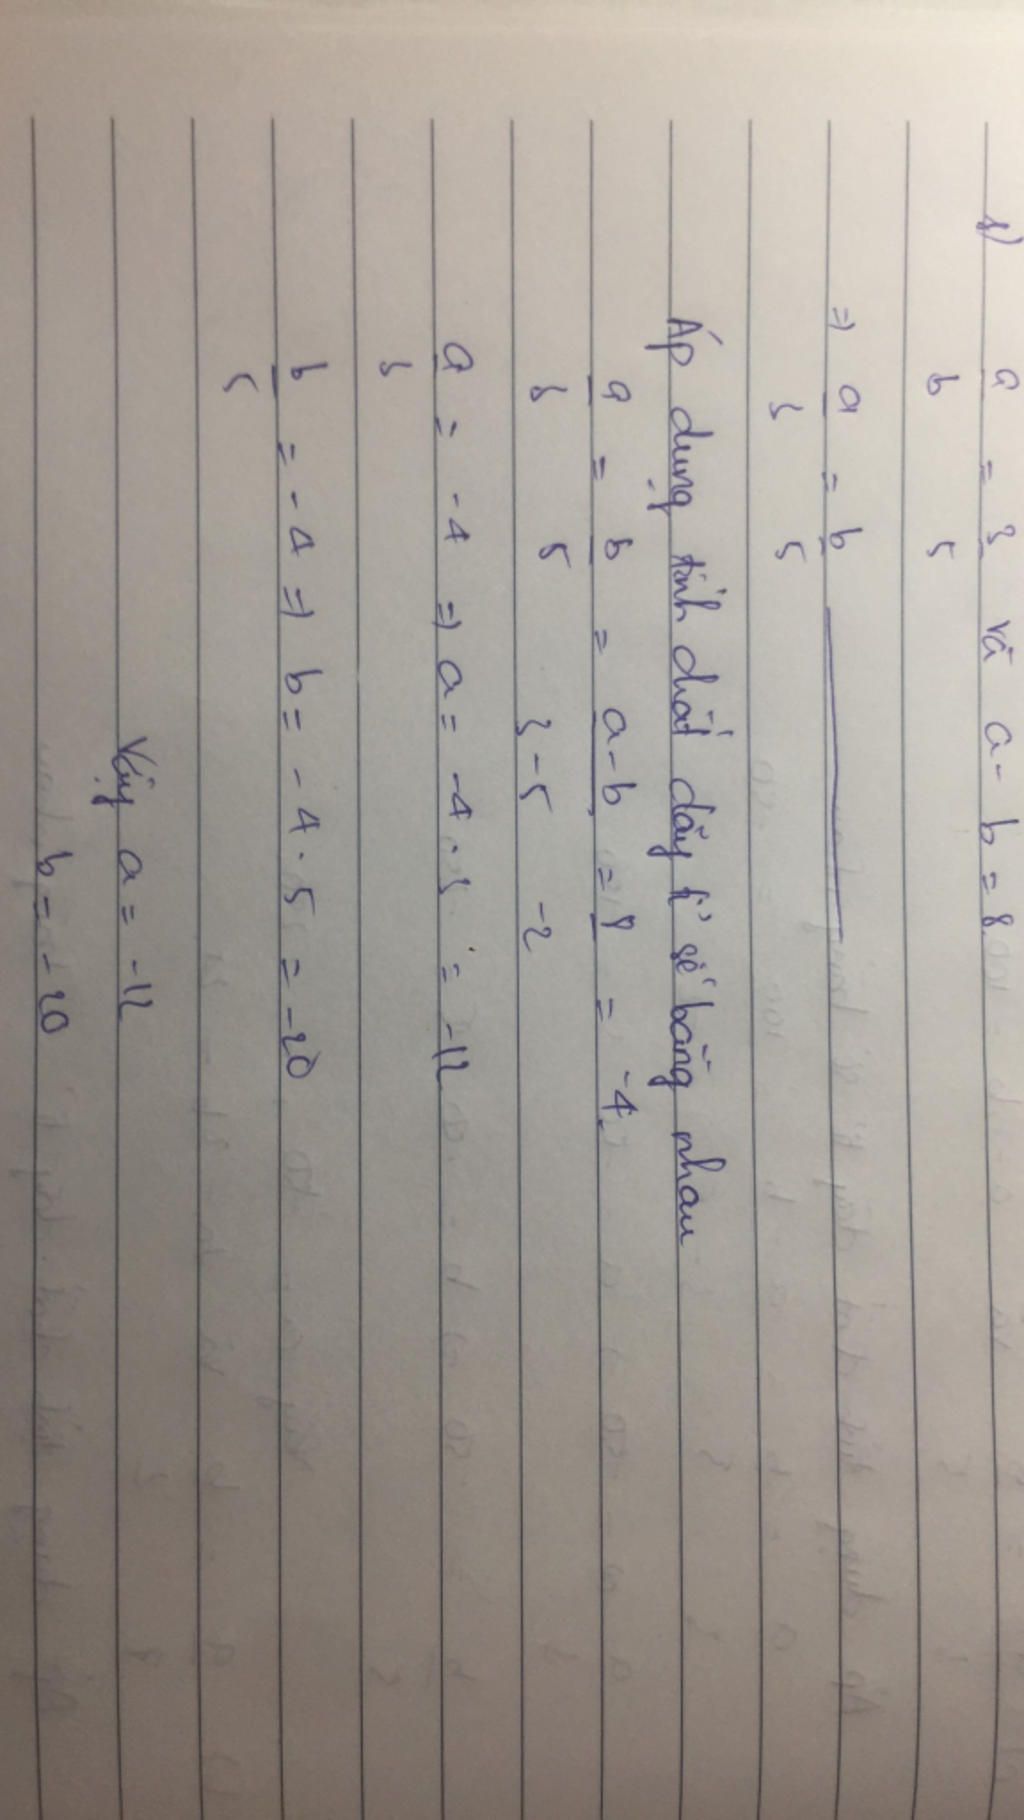 b) a/b = 3/5 và a - b = 8
=> a/3 = b/5
Áp dụng tính chất dãy tỉ số bằng nhau
a/3 = b/5 = a-b/3-5 = 8/-2 = -4
a/3 = -4 => a = -4 . 3 = -12
b/5 = -4 => b = -4 . 5 = -20
Vậy a = -12
b = -20